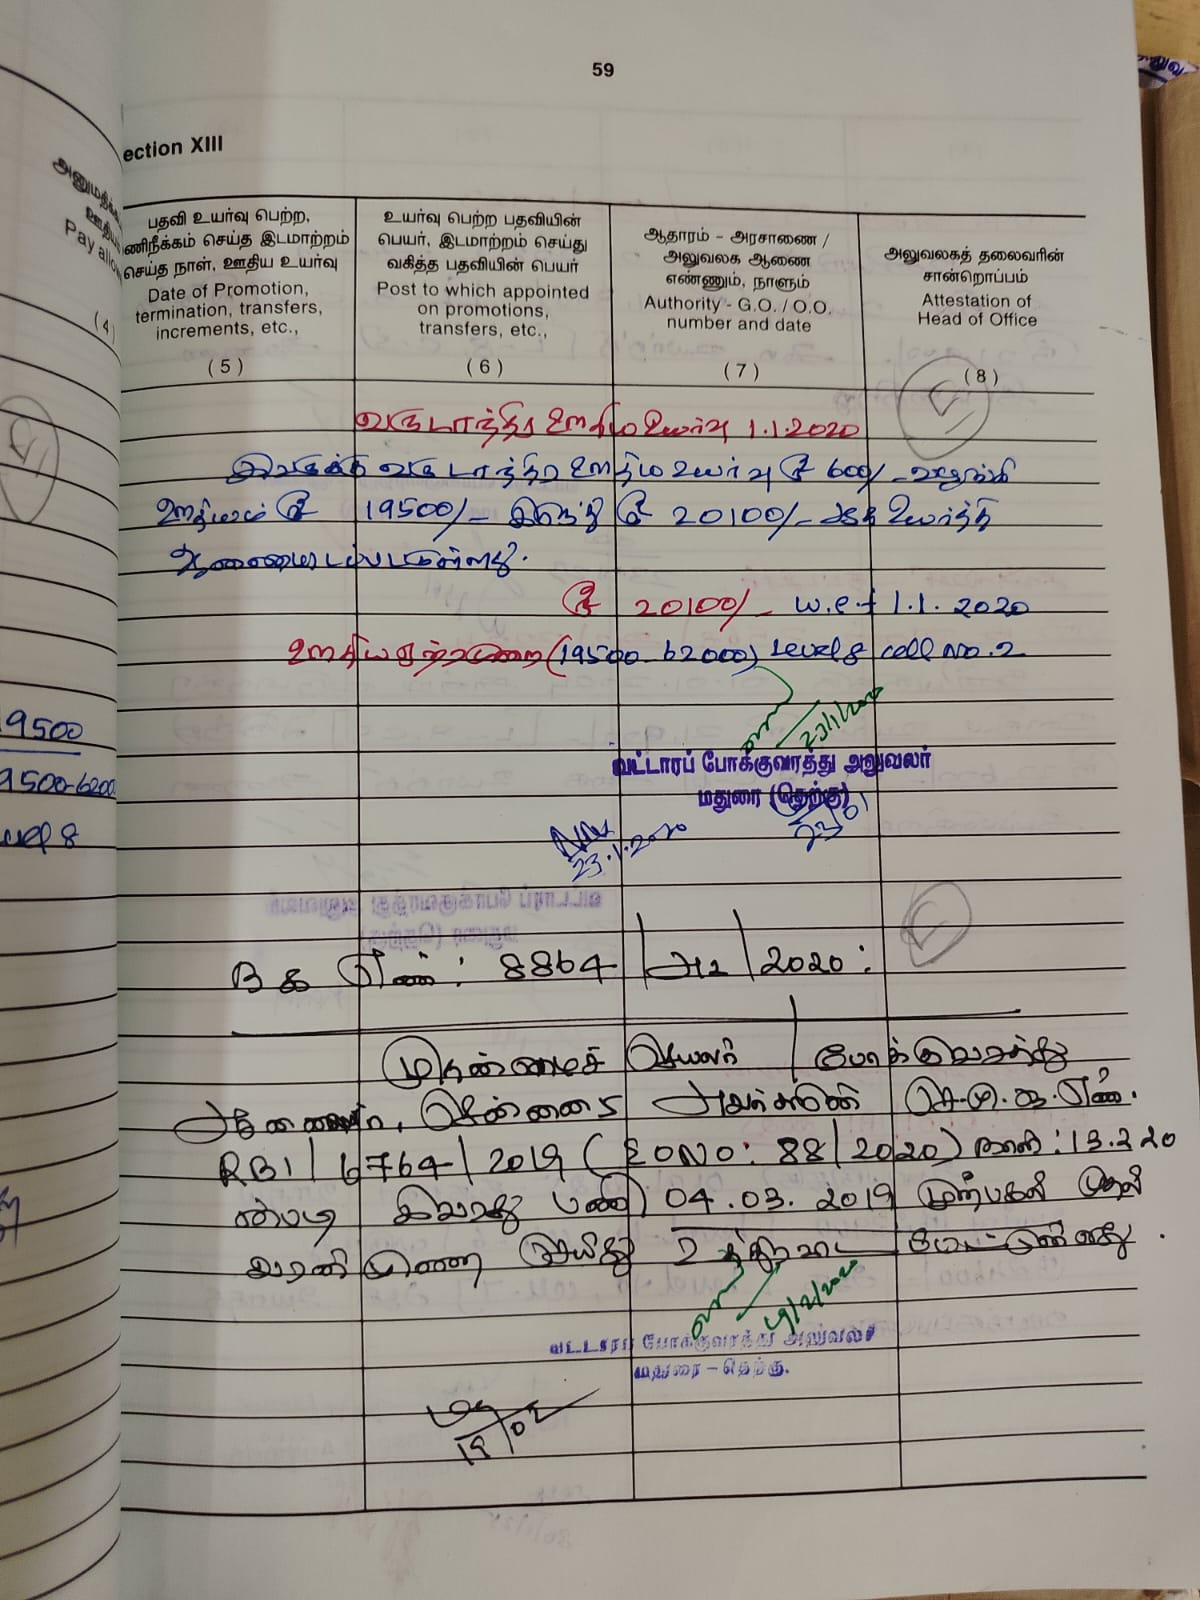 59
ection XIII
அனுமதிக்க
ஊதிய
Pay allow
(4)
பதவி உயர்வு பெற்ற,
ணிநீக்கம் செய்த இடமாற்றம்
செய்த நாள், ஊதிய உயர்வு
Date of Promotion,
termination, transfers,
increments, etc.,
(5)
உயர்வு பெற்ற பதவியின்
பெயர், இடமாற்றம் செய்து
வகித்த பதவியின் பெயர்
Post to which appointed
on promotions,
transfers, etc.,
(6)
ஆதாரம் - அரசாணை /
அலுவலக ஆணை
எண்ணும், நாளும்
Authority - G.O. / O.O.
number and date
(7)
அலுவலகத் தலைவரின்
சான்றொப்பம்
Attestation of
Head of Office
(8)
வருடாந்திர ஊதிய உயர்வு 1.1.2020
இவருக்கு வருடாந்திர ஊதிய உயர்வு ரூ 600/- வழங்கி
ஊதியம் ரூ 19500/- இருந்து ரூ 20100/- ஆக உயர்த்தி
ஆணையிடப்பட்டுள்ளது.
ரூ 20100/- w.e.f 1.1.2020
ஊதிய ஏற்றமுறை (19500-62000) Level 8 cell No.2
23/1/2020
வட்டாரப் போக்குவரத்து அலுவலர்
மதுரை (தெற்கு)
23/01
23.1.2020
9500
9500-6200
8
எண்: 8864/அ2/2020:
முதன்மைச் செயலர் / போக்குவரத்து
ஆணையர், சென்னை அவர்களின் செ.மு.ந.எண்.
RB1/6764/2019 (EONO: 88/2020) நாள்: 13.2.20
ன்படி இவரது பணி 04.03.2019 முற்பகல் முதல்
வரன்முறை செய்து உத்தரவு
19/2/2020
வட்டாரப் போக்குவரத்து அலுவலர்
மதுரை - தெற்கு.
19/02